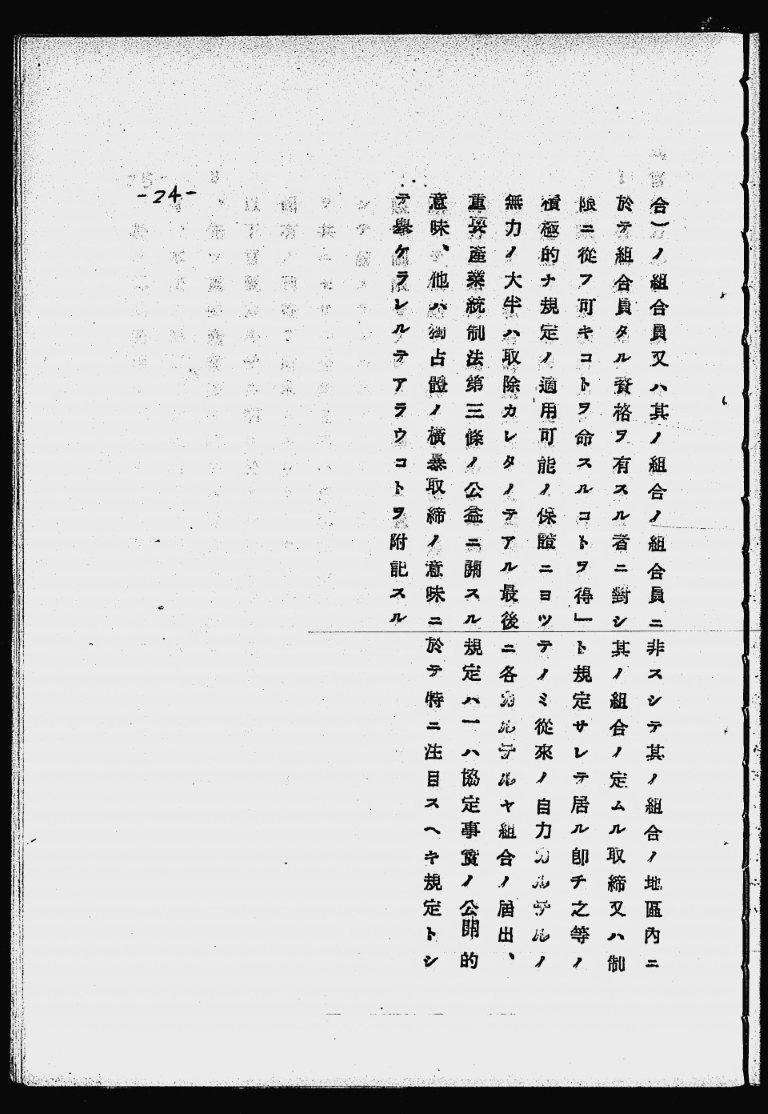 合）ノ組合員又ハ其ノ組合ノ組合員ニ非スシテ其ノ組合ノ地區內ニ
於テ組合員タル資格ヲ有スル者ニ對シ其ノ組合ノ定ムル取締又ハ制
限ニ從フ可キコトヲ命スルコトヲ得」ト規定サレテ居ル卽チ之等ノ
積極的ナ規定ノ適用可能ノ保證ニヨツテノミ從來ノ自力カルテルノ
無力ノ大半ハ取除カレタノテアル最後ニ各カルテルヤ組合ノ屆出、
重要產業統制法第三條ノ公益ニ關スル規定ハ一ハ協定事實ノ公開的
意味、他ハ獨占體ノ橫暴取締ノ意味ニ於テ特ニ注目スヘキ規定トシ
テ擧ケラレルテアラウコトヲ附記スル
-24-